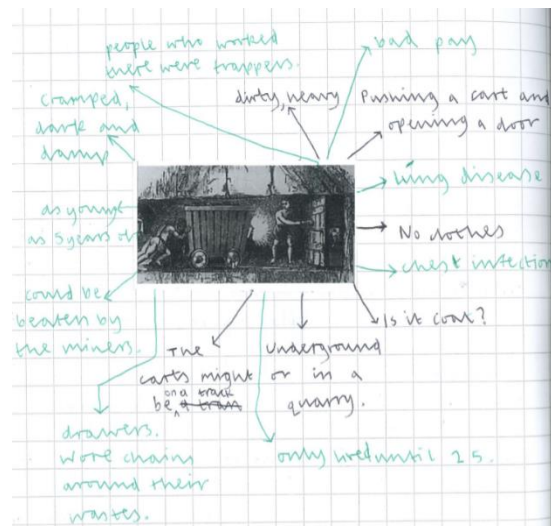 people who worked
there were trappers.
bad pay
cramped,
dark and
damp
dirty, heavy
Pushing a cart and
opening a door
lung disease
as young
as 5 years
No clothes
chest infection
could be
beaten by
the miners.
Is it coal?
The
carts might
on a track
be
Underground
or in a
quarry.
drawers.
wore chains
around their
wastes.
only until 25.